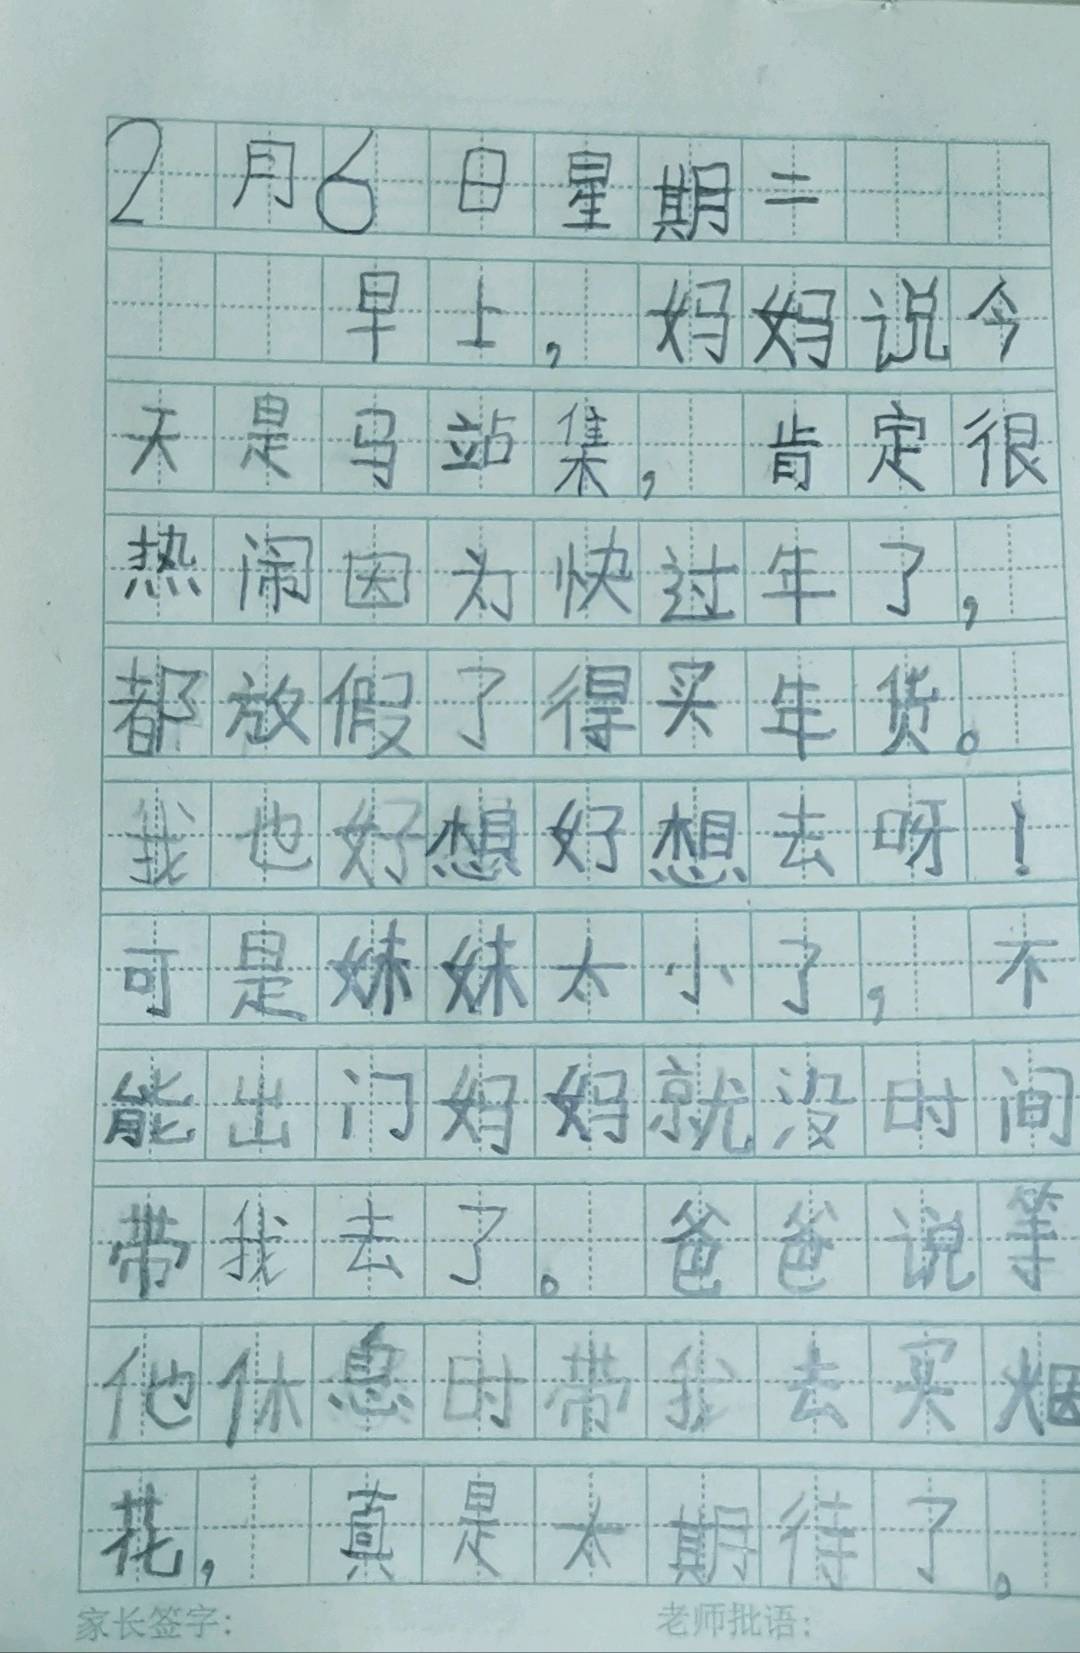 2月6日星期二
早上，妈妈说今
天是马站集，肯定很
热闹因为快过年了，
都放假了得买年货。
我也好想好想去呀！
可是妹妹太小了，不
能出门妈妈就没时间
带我去了。爸爸说等
他休息时带我去买烟
花，真是太期待了。
家长签字：
老师批语：